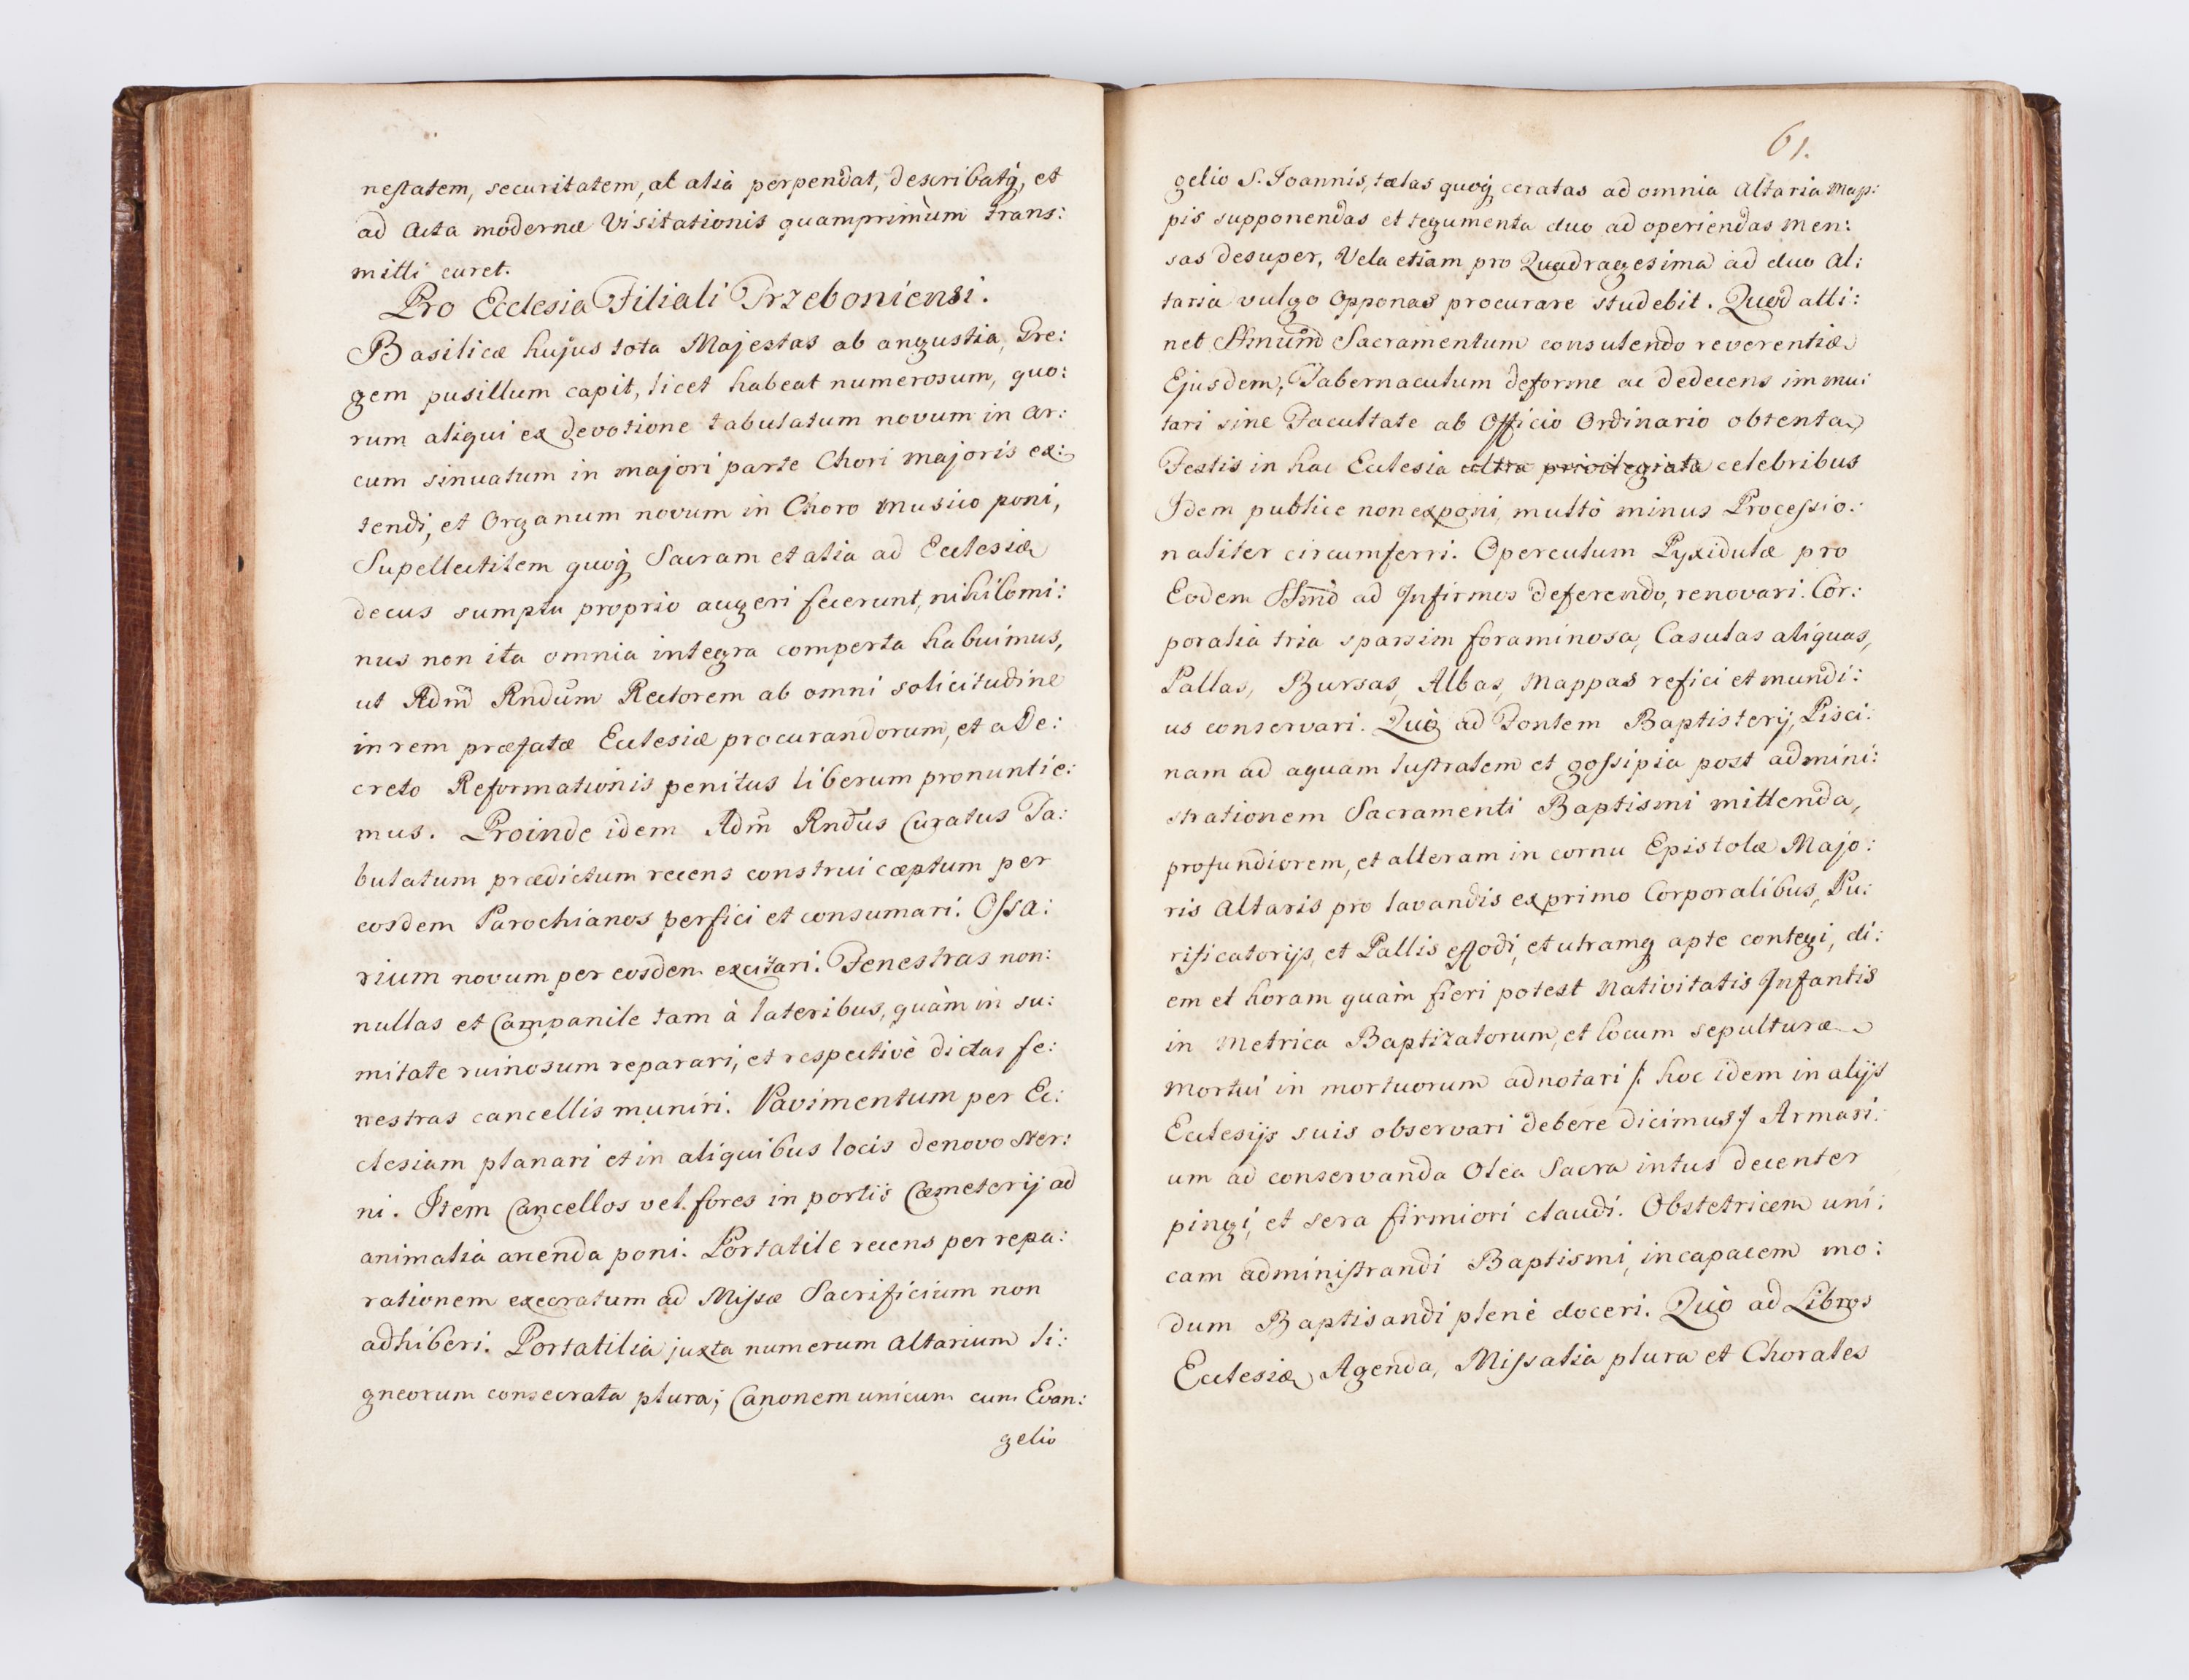 nestatem, securitatem, at alia perpendat, describatq, et
ad Acta modernæ Visitationis quamprimùm trans:
mitti curet.
Pro Ecclesia Filiali Trzeboniensi.
Basilicæ hujus tota Majestas ab angustia, Gre:
gem pusillum capit, licet habeat numerosum, quo:
rum aliqui ex devotione tabulatum novum in ar:
cum sinuatum in majori parte Chori majoris ex:
tendi, et Organum novum in Choro musico poni,
Supellectilem quoq Sacram et alia ad Ecclesiæ
decus sumptu proprio augeri fecerunt, nihilomi:
nus non ita omnia integra comperta habuimus,
ut Adm̃ Rndum Rectorem ab omni solicitudine
in rem præfatæ Ecclesiæ procurandorum, et a De:
creto Reformationis penitus liberum pronuntie:
mus. Proinde idem Adm̃ Rndus Curatus Ta:
bulatum prædictum recens construi cæptum per
eosdem Parochianos perfici et consumari. Ossa:
rium novum per eosdem excitari. Fenestras non:
nullas et Campanile tam à lateribus, quàm in su:
mitate ruinosum reparari, et respectivè dictas fe:
nestras cancellis muniri. Pavimentum per Ec:
clesiam planari et in aliquibus locis denovo ster:
ni. Item Cancellos vel fores in portis Cæmeterij ad
animalia arcenda poni. Portatile recens per repa:
rationem execratum ad Missæ Sacrificium non
adhiberi. Portatilia juxta numerum altarium li:
gneorum consecrata plura; Canonem unicum cum Evan:
gelio
61.
gelio S. Joannis, tælas quoq ceratas ad omnia Altaria Map:
pis supponendas et tegumenta duo ad operiendas men:
sas desuper, Vela etiam pro Quadragesima ad duo Al:
taria vulgo Opponas procurare studebit. Quod atti:
net SSmum Sacramentum consulendo reverentiæ
Ejusdem, Tabernaculum deforme ac dedecens immu:
tari sine Facultate ab Officio Ordinario obtenta,
Festis in hac Ecclesia ultra privilegiata celebribus
Idem publice non exponi, multò minus Processio:
naliter circumferri. Operculum Pyxidulæ pro
Eodem SSmõ ad Infirmos deferendo, renovari. Cor:
poralia tria sparsim foraminosa, Casulas aliquas,
Pallas, Bursas, Albas, Mappas refici et mundi:
us conservari. Quò ad Fontem Baptisterij, Pisci:
nam ad aquam lustralem et gossipia post admini:
strationem Sacramenti Baptismi mittenda,
profundiorem, et alteram in cornu Epistolæ Majo:
ris Altaris pro lavandis ex primo Corporalibus, Pu:
rificatorijs, et Pallis effodi, et utramq apte contegi, di:
em et horam quàm fieri potest Nativitatis Infantis
in Metrica Baptizatorum, et locum sepulturæ
mortui in mortuorum adnotari /: hoc idem in alijs
Ecclesijs suis observari debere dicimus :/ Armari:
um ad conservanda Olea Sacra intus decenter
pingi, et sera firmiori claudi. Obstetricem uni:
cam administrandi Baptismi, incapacem mo:
dum Baptisandi plenè doceri. Quò ad Libros
Ecclesiæ, Agenda, Missalia plura et Chorales